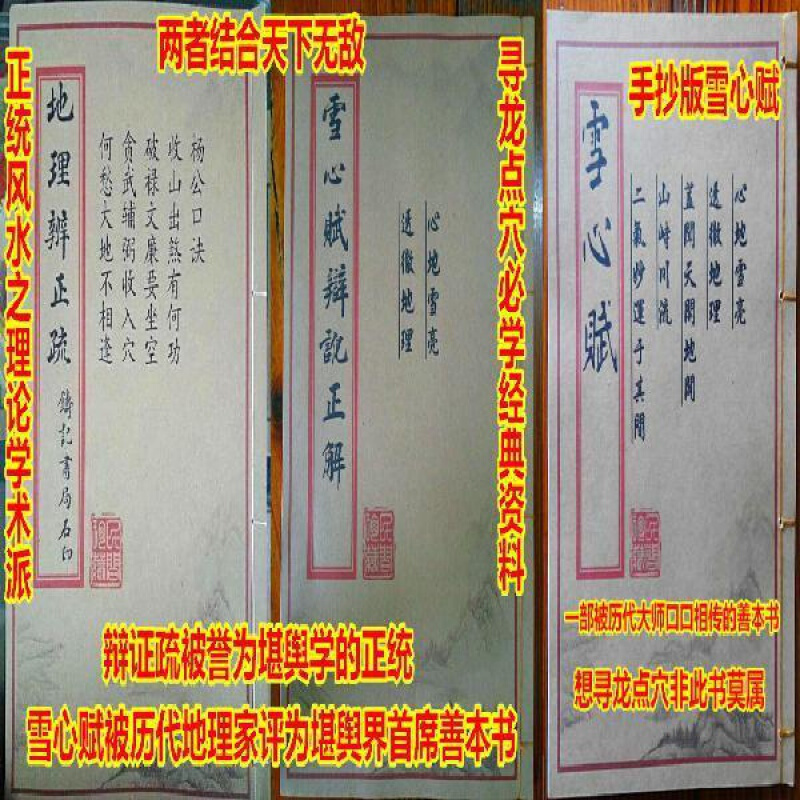 两者结合天下无敌
正统风水之理论学术派
寻龙点穴必学经典资料
手抄版雪心赋
地理辨正疏
鑄記書局石印
杨公口诀
歧山出煞有何功
破禄文廉要坐空
贪武辅弼收入穴
何愁大地不相逢
雪心賦辯訛正解
心地雪亮
透徹地理
雪心賦
心地雪亮
透徹地理
蓋聞天開地闢
山峙川流
二氣妙運于其間
辩证疏被誉为堪舆学的正统
雪心赋被历代地理家评为堪舆界首席善本书
一部被历代大师口口相传的善本书
想寻龙点穴非此书莫属